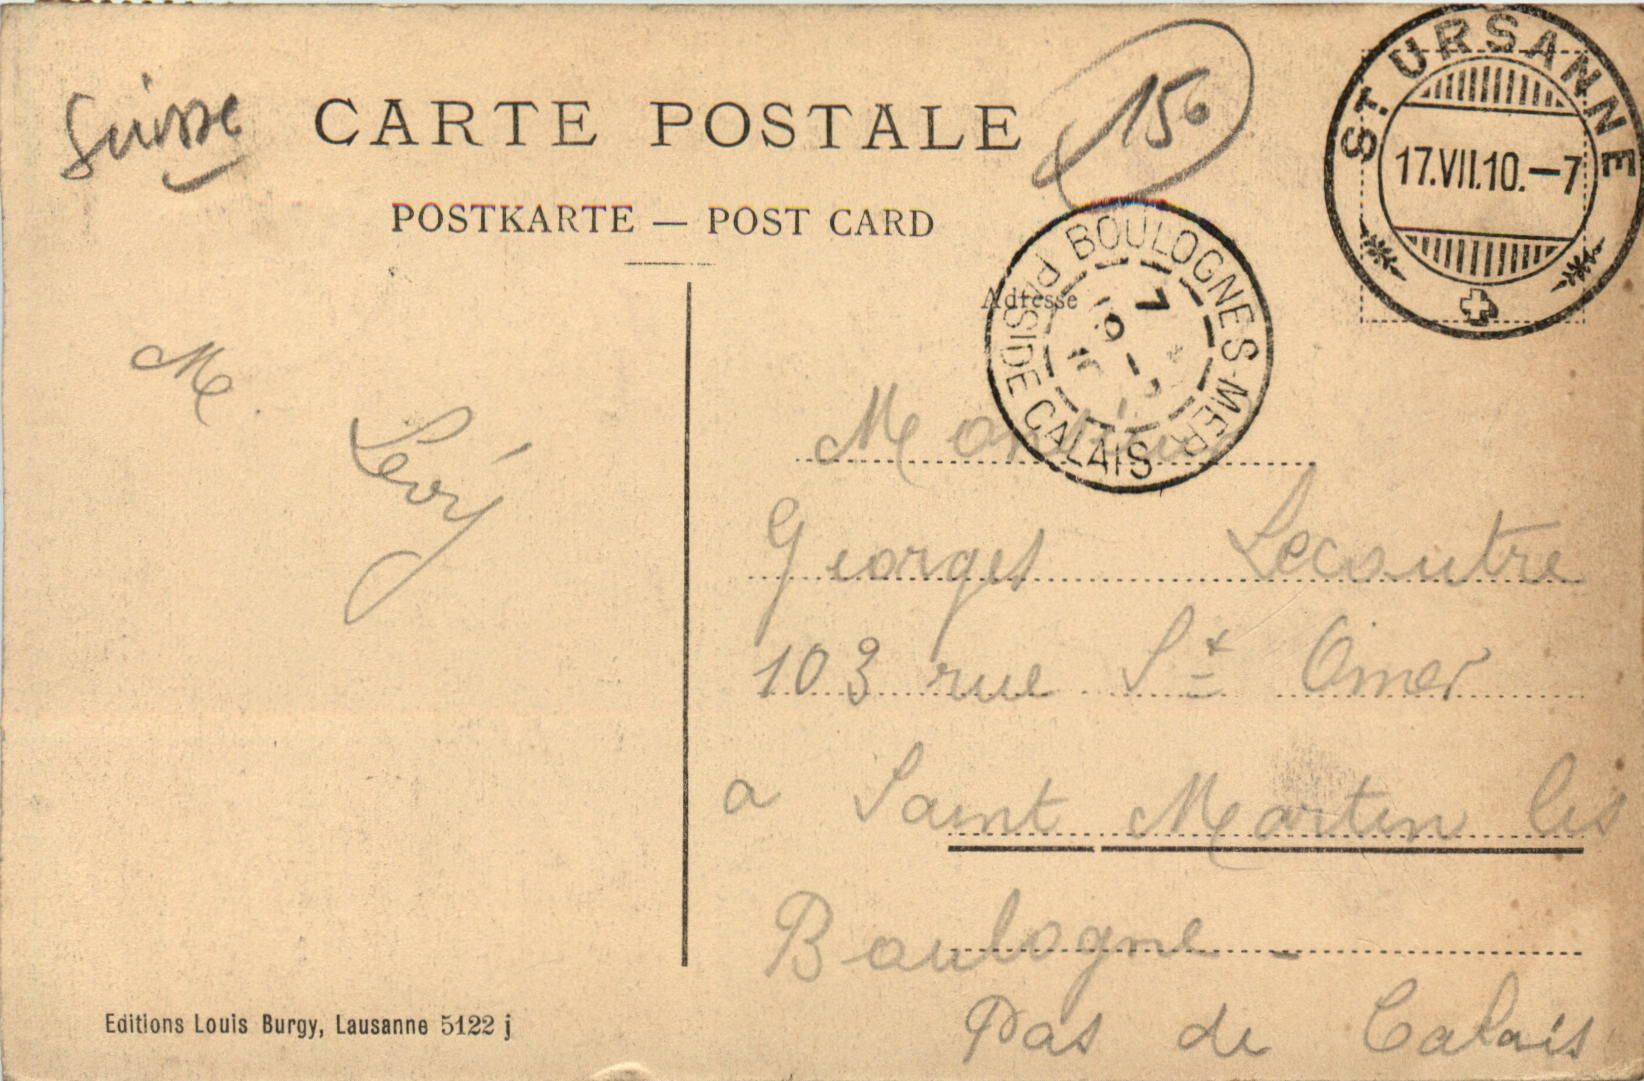 Suisse
CARTE POSTALE
150
POSTKARTE — POST CARD
ST. URSANNE
17.VII.10.–7
BOULOGNE-S-MER
PAS DE CALAIS
Adresse
M. Levy
Monsieur
Georges Lecoutre
103 rue St Omer
a Saint Martin les
Boulogne -
Pas de Calais
Editions Louis Burgy, Lausanne 5122 j